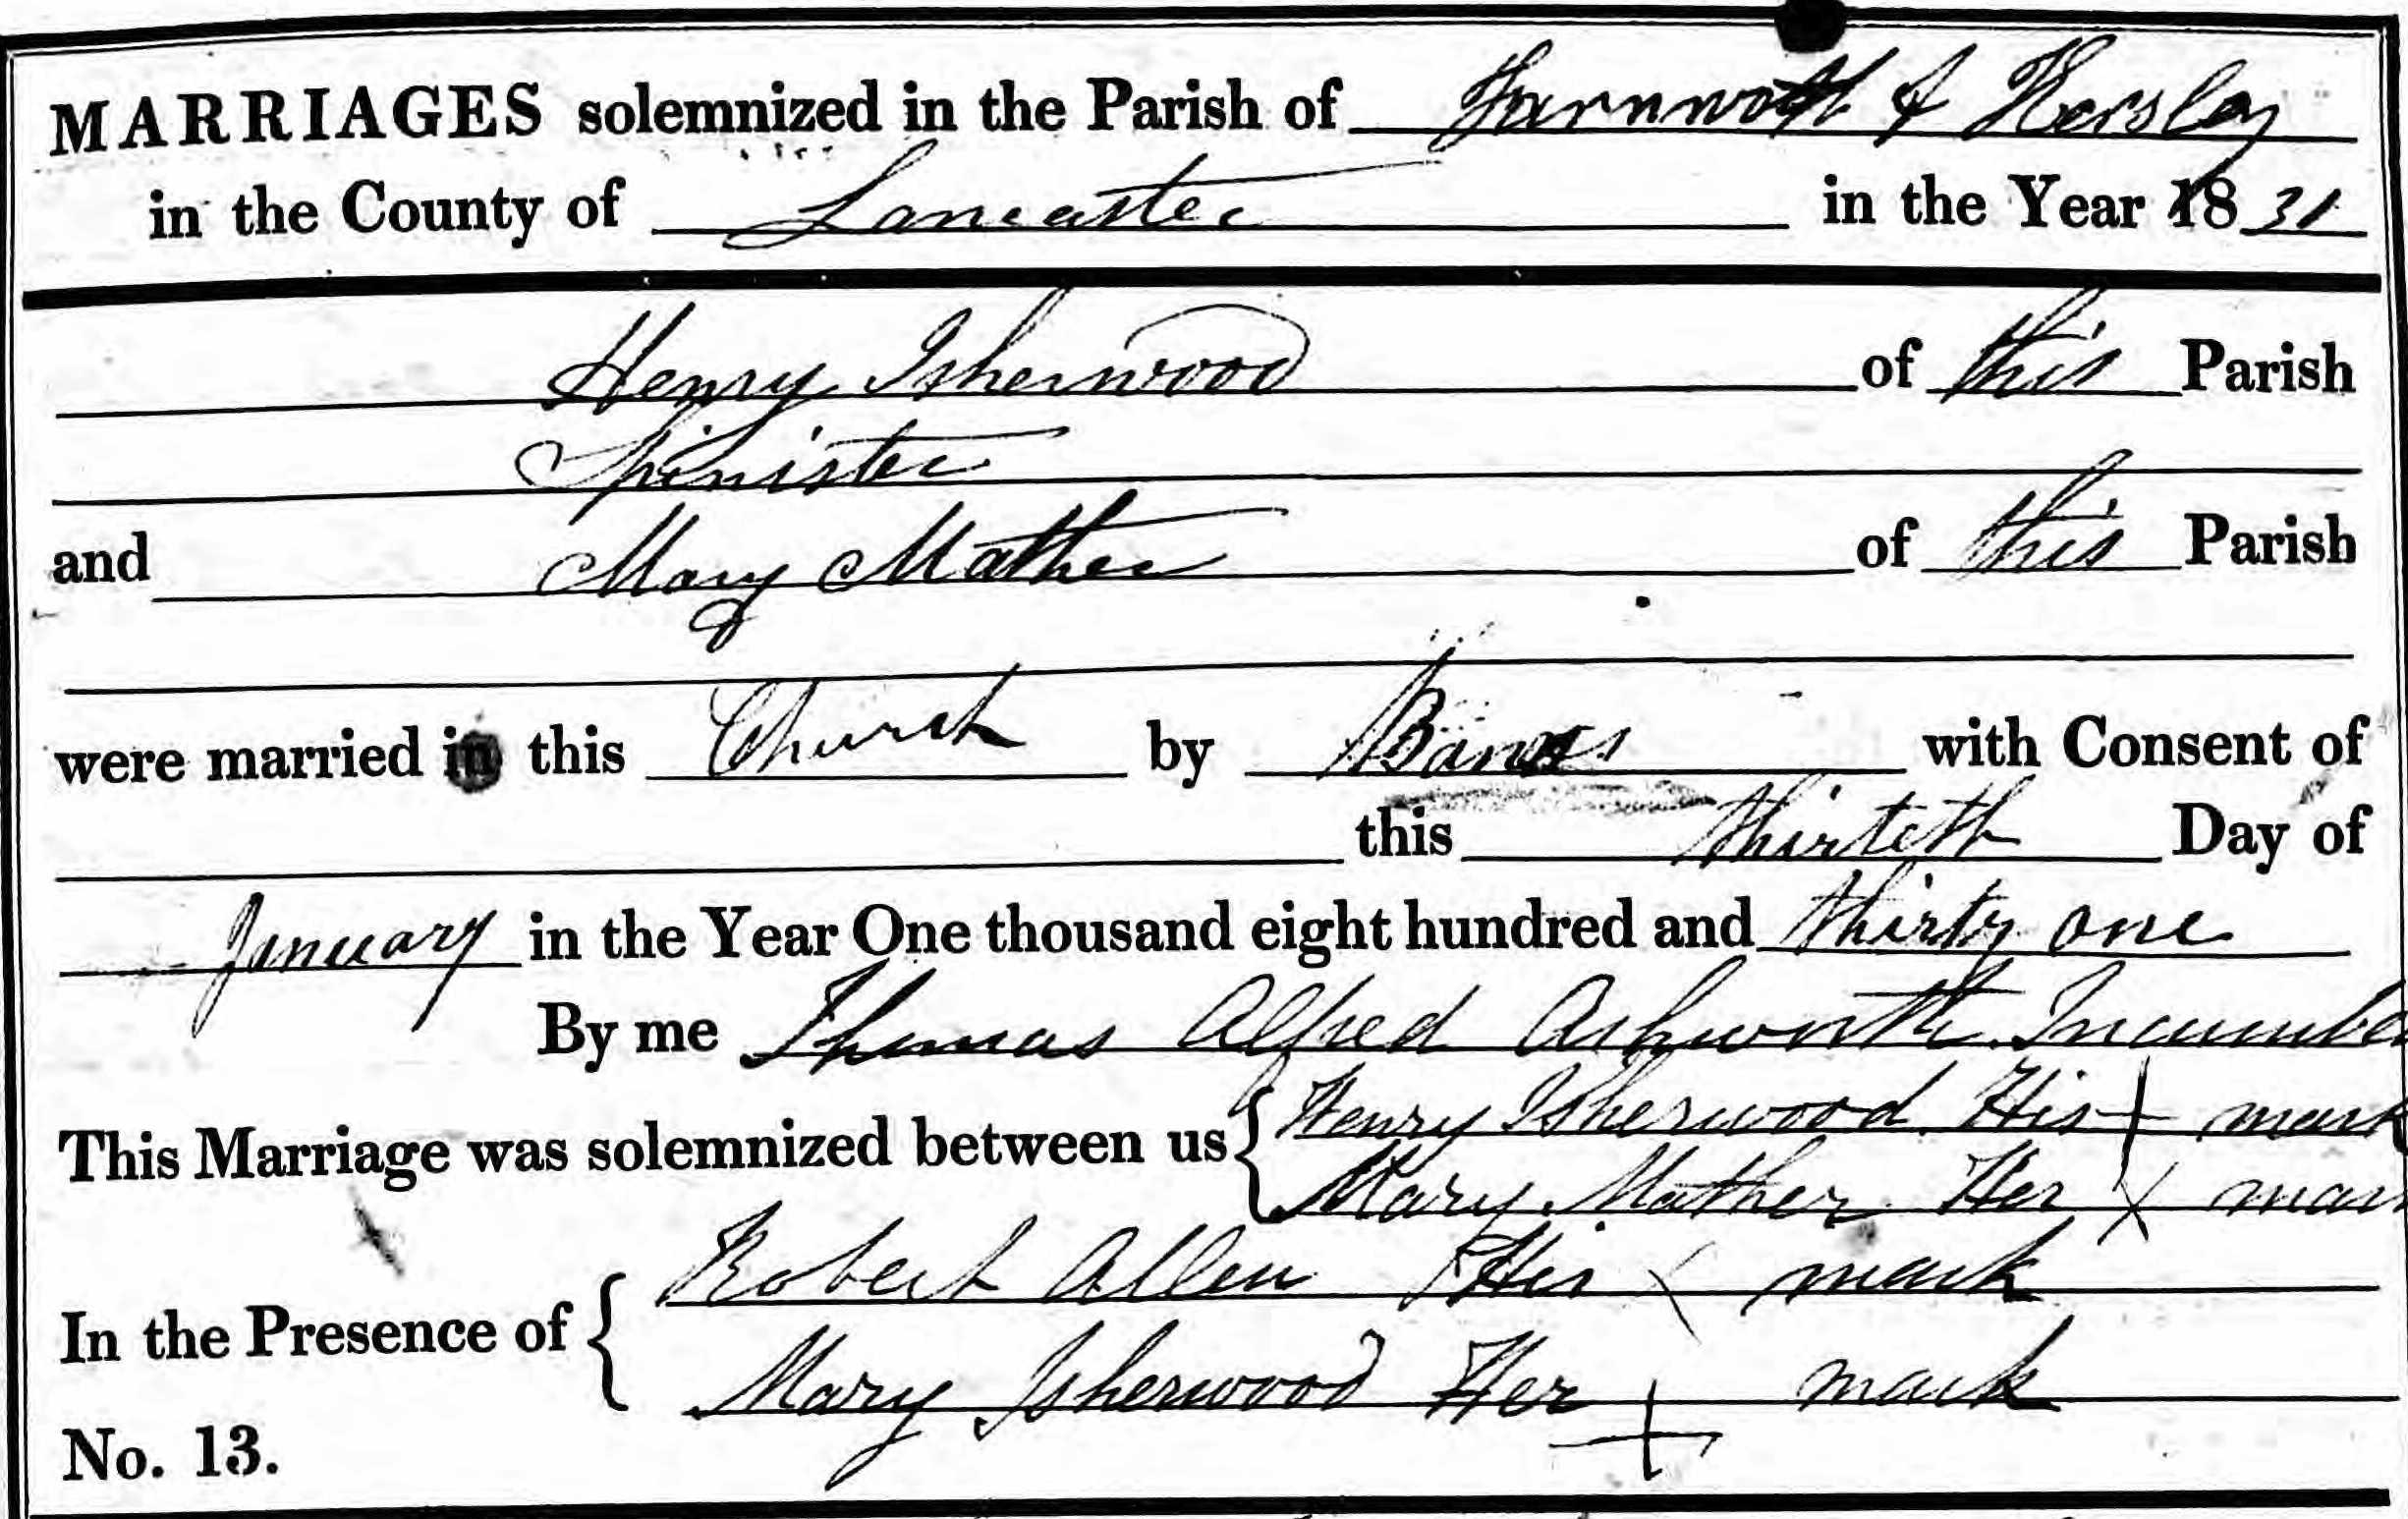 MARRIAGES solemnized in the Parish of Farnworth & Kersley
in the County of Lancaster in the Year 1831
Henry Isherwood of this Parish
Spinister
and Mary Mather of this Parish
were married in this Church by Banns with Consent of
this thirteth Day of
January in the Year One thousand eight hundred and thirty one
By me Thomas Alfred Ashworth Incumbe
This Marriage was solemnized between us { Henry Isherwood His + mark
Mary Mather Her X mar
In the Presence of { Robert Allen His X mark
Mary Isherwood Her + mark
No. 13.